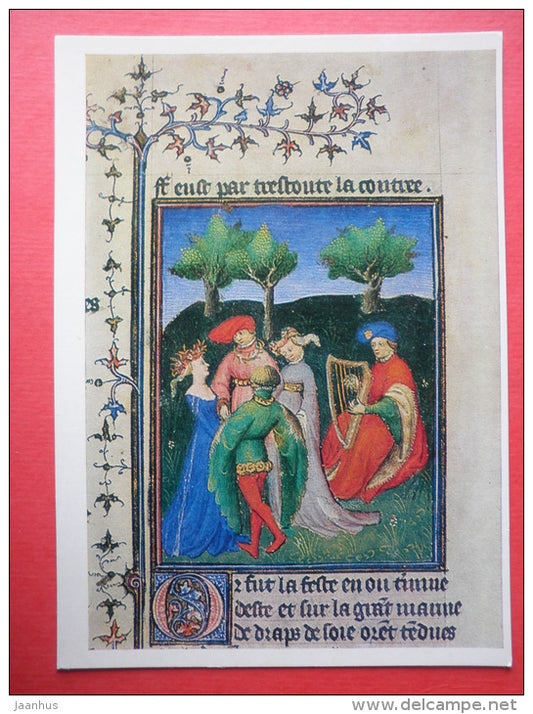 st eust par trestoute la contree.
Or fut la feste en ou timue
deste et sur la grãt manne
de draps de soie orẽt tẽdues
Jaanhus
www.delcampe.net